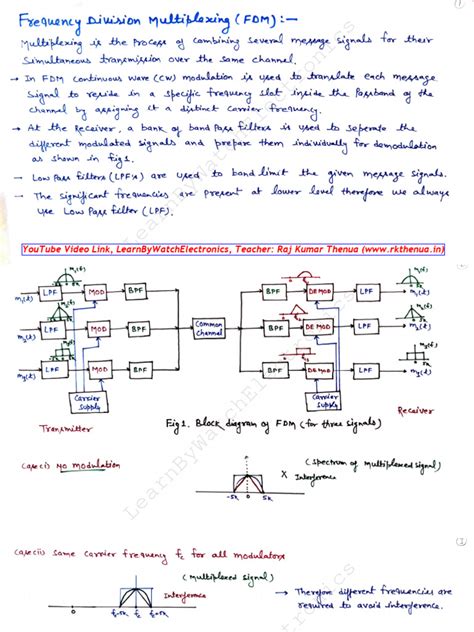 ①
Frequency Division Multiplexing (FDM) :-
Multiplexing is the Process of combining several message signals for their
Simultaneous transmission over the same channel.
→ In FDM continuous wave (CW) modulation is used to translate each message
Signal to reside in a specific frequency slot inside the Passband of the
channel by assigning it a distinct Carrier frequency.
→ At the Receiver, a bank of band Pass filters is used to seperate the
different modulated signals and prepare them individually for demodulation
as shown in fig 1.
→ Low Pass filters (LPFs) are used to band limit the given message signals.
→ The significant frequencies are present at lower level therefore we always
use Low Pass filter (LPF).
YouTube Video Link, LearnByWatchElectronics, Teacher: Raj Kumar Thenua (www.rkthenua.in)
m₁(f) m₁(f)
m₁(t) LPF MOD BPF BPF DEMOD LPF m₁(t)
m₂(f) m₂(f)
m₂(t) LPF MOD BPF Common Channel BPF DEMOD LPF m₂(t)
m₃(f) m₃(f)
m₃(t) LPF MOD BPF BPF DEMOD LPF m₃(t)
Carrier Supply Carrier Supply
Transmitter Receiver
Fig 1. Block diagram of FDM (for three signals)
Case(i) No modulation
(Spectrum of multiplexed signal)
X Interference
-5k 0 5k
Case(ii) Same Carrier frequency fc for all modulators
(multiplexed signal)
Interference
0 fc-5k fc fc+5k
→ Therefore different frequencies are
required to avoid interference.
LearnByWatchElectronics